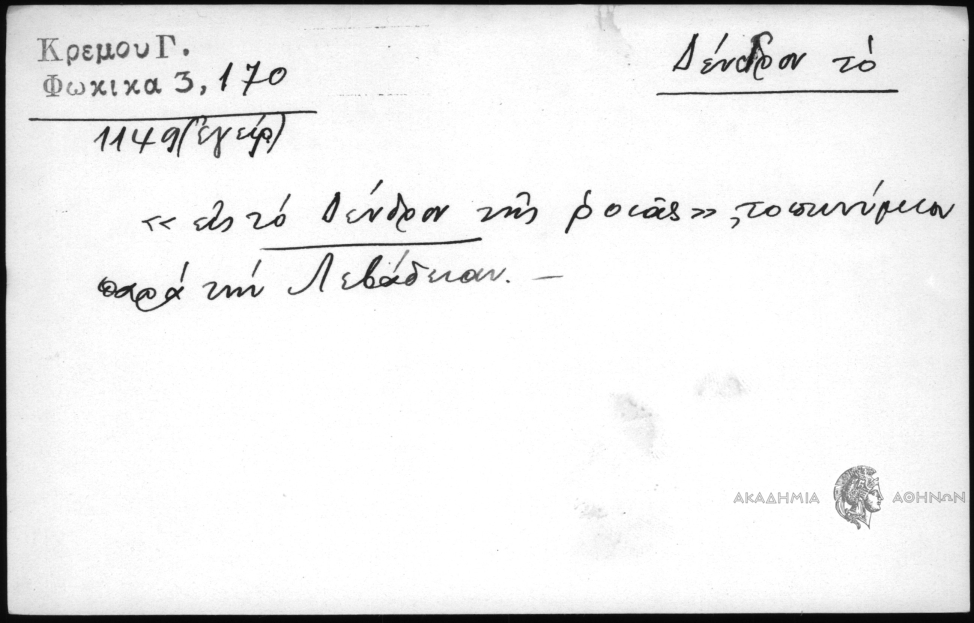 Κρεμου Γ.
Φωκικα 3, 170
Δένδρον τό
1149 (Ἐγειρ)
« εἰς τό Δένδρον τῆς ῥοιᾶς », τοπωνύμιον
παρά τήν Λεβάδειαν. –
ΑΚΑΔΗΜΙΑ ΑΘΗΝΩΝ